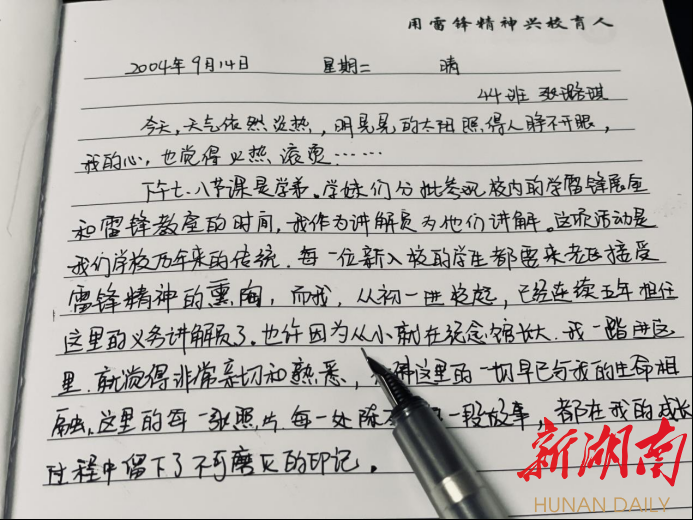 用雷锋精神兴校育人
2004年9月14日 星期二 晴
44班 张璐琪
今天,天气依然炎热,明晃晃的太阳照得人睁不开眼,
我的心,也觉得火热滚烫……
下午七、八节课是学弟、学妹们分批参观校内的学雷锋展室
和雷锋教室的时间,我作为讲解员为他们讲解。这项活动是
我们学校历年来的传统,每一位新入校的学生都要来老区接受
雷锋精神的熏陶,而我,从初一进校起,已经连续五年担任
这里的义务讲解员了。也许因为从小就在纪念馆长大,我一踏进这
里,就觉得非常亲切和熟悉,佛这里的一切早已与我的生命相
融,这里的每一张照片、每一处陈一段故事,都在我的成长
过程中留下了不可磨灭的印记。
新湖南
HUNAN DAILY